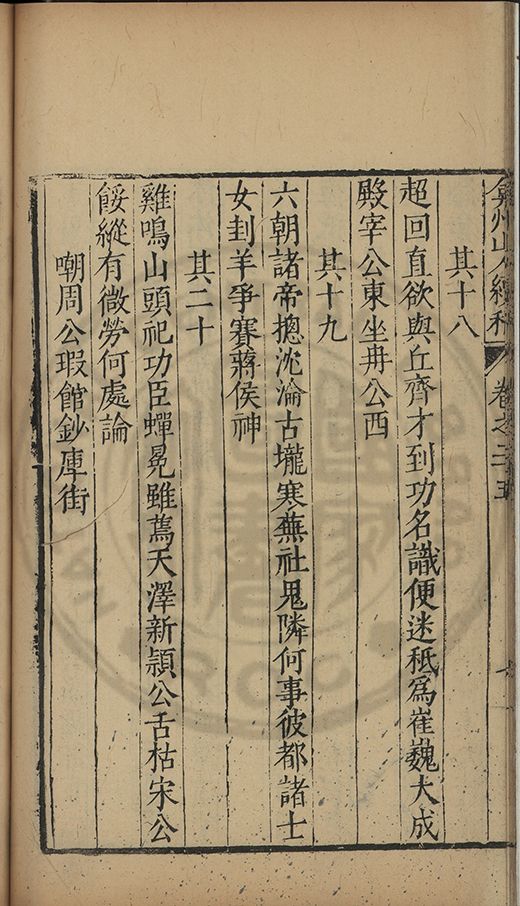 弇州山人續稿 卷之二十五
其十八
超回直欲與丘齊才到功名識便迷秪為崔巍大成
殿宰公東坐冉公西
其十九
六朝諸帝摠沈淪古壠寒蕪社鬼隣何事彼都諸士
女刲羊爭賽蔣侯神
其二十
雞鳴山頭祀功臣蟬冕雖蔫天澤新穎公舌枯宋公
餒縱有微勞何處論
嘲周公瑕館鈔庫街